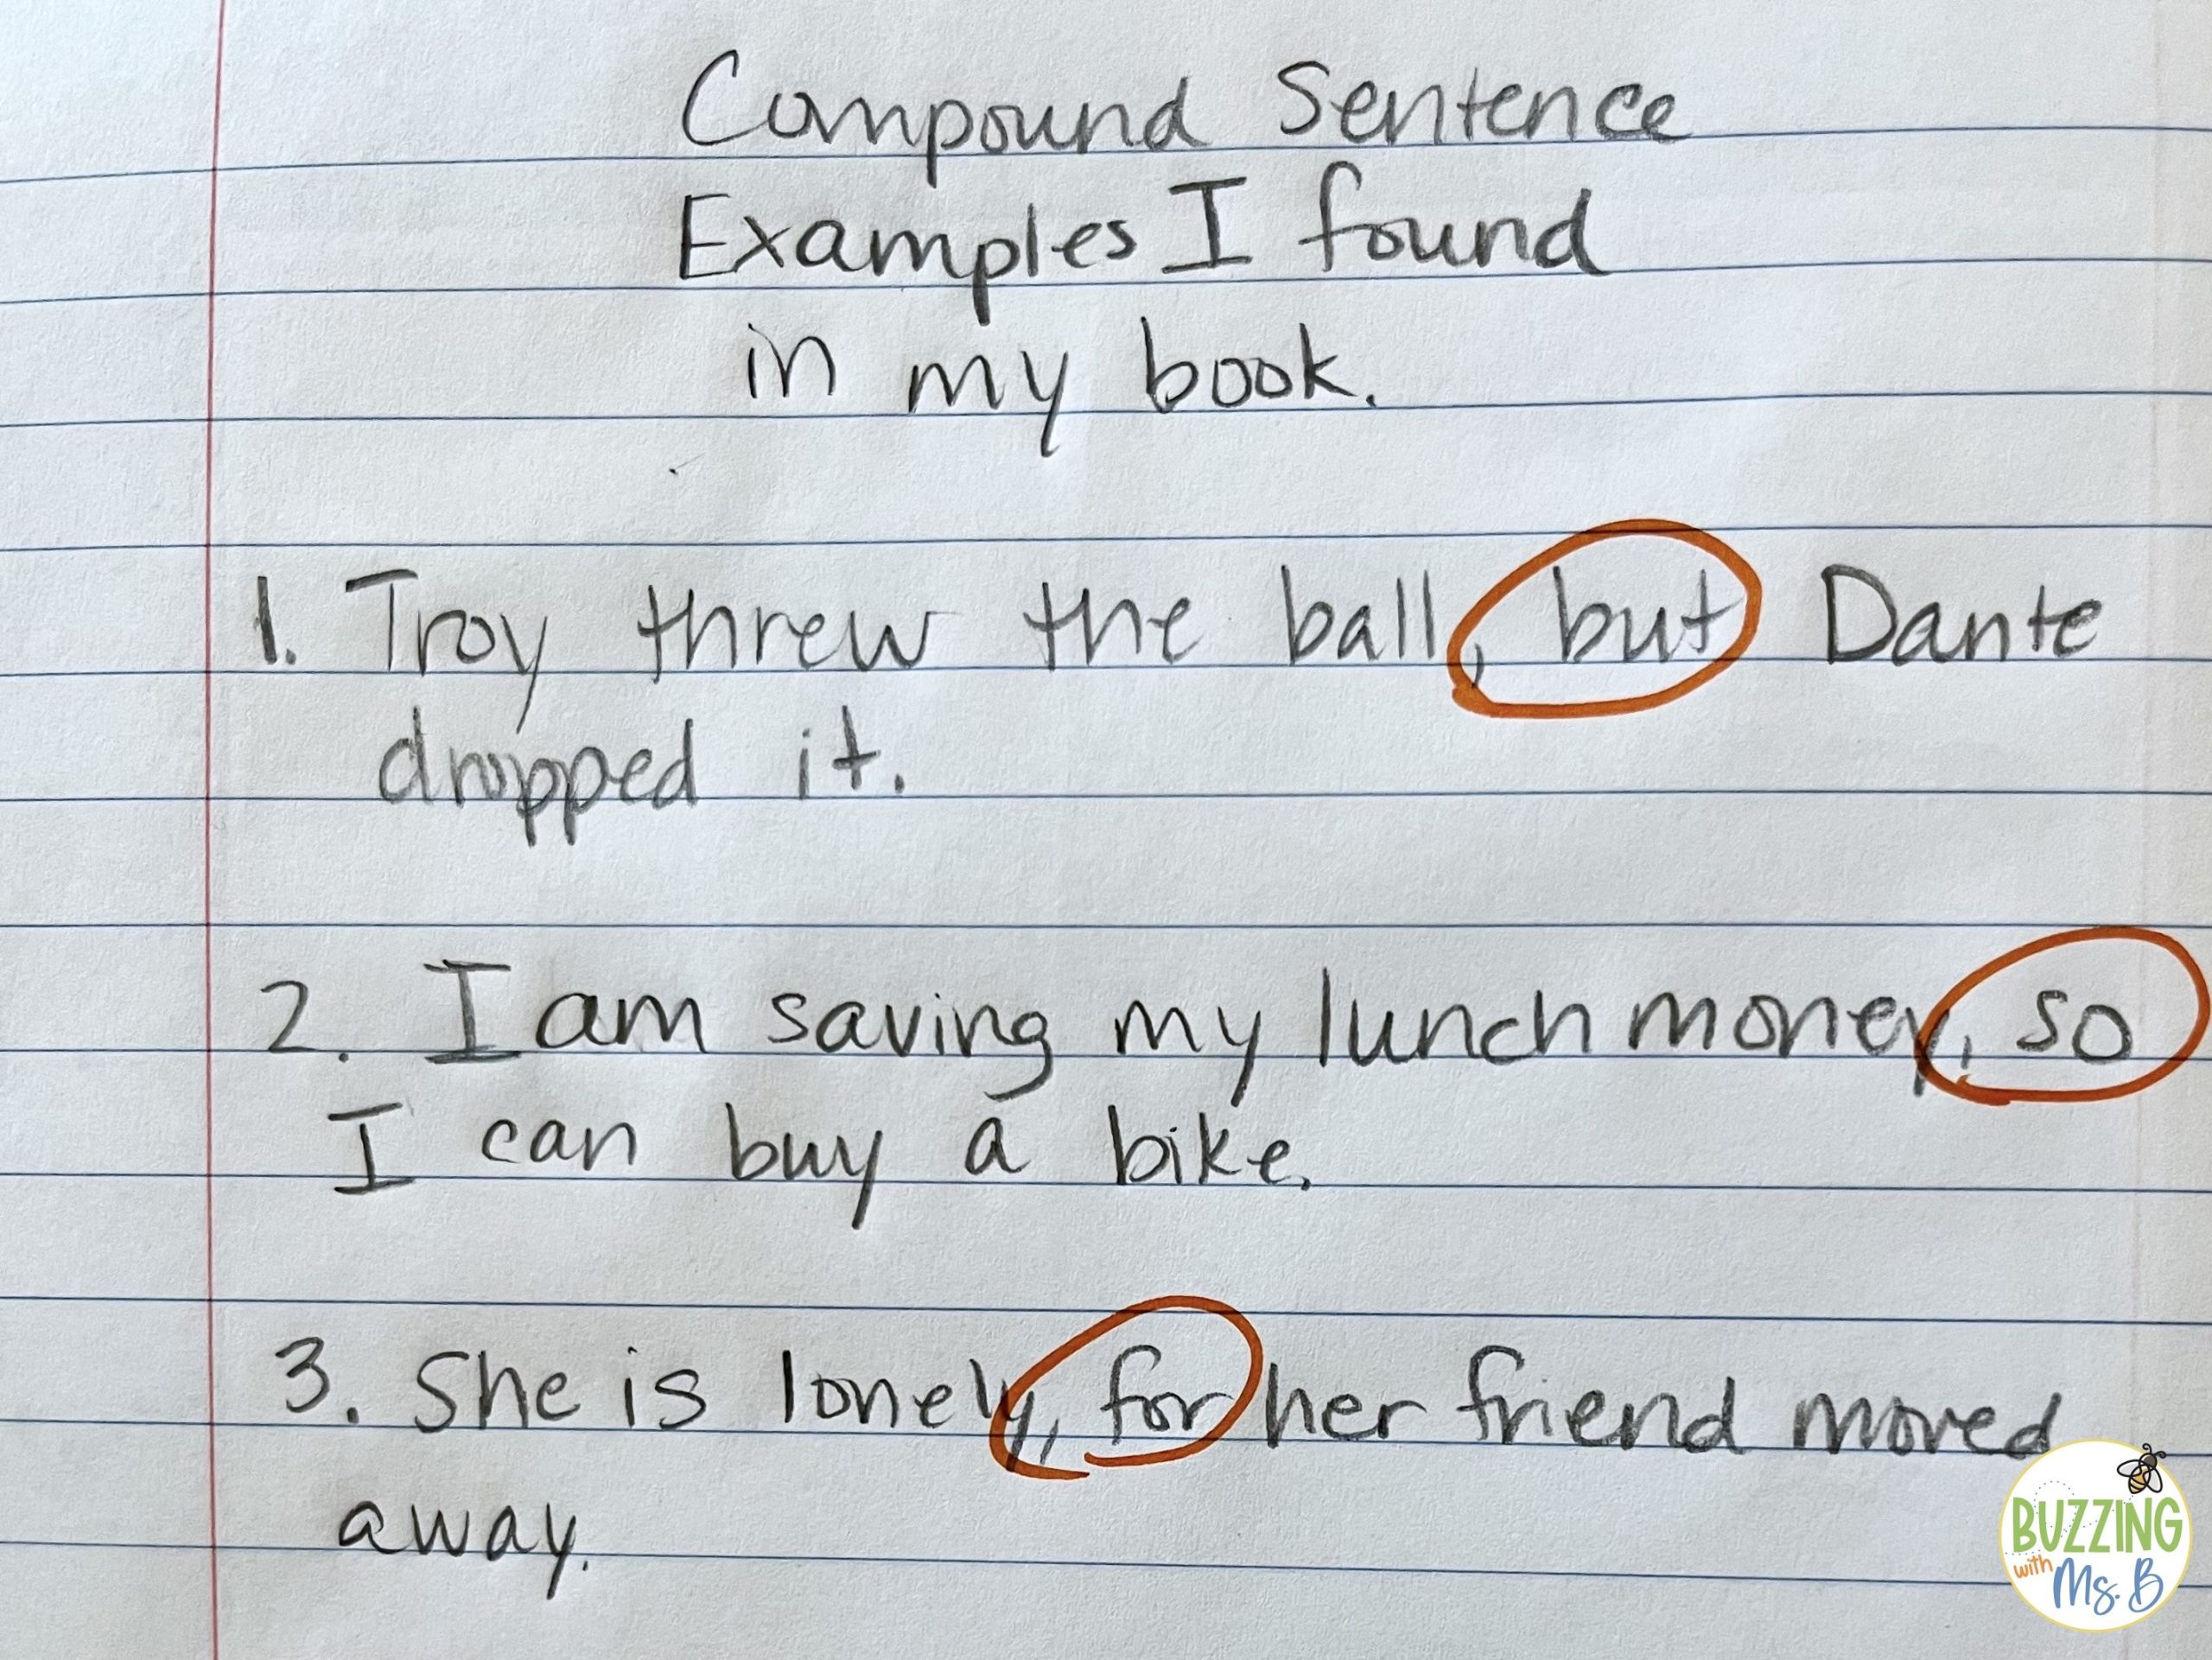 Compound Sentence
Examples I found
in my book.
1. Troy threw the ball, but Dante
dropped it.
2. I am saving my lunch money, so
I can buy a bike.
3. She is lonely, for her friend moved
away.
BUZZING
with Ms. B